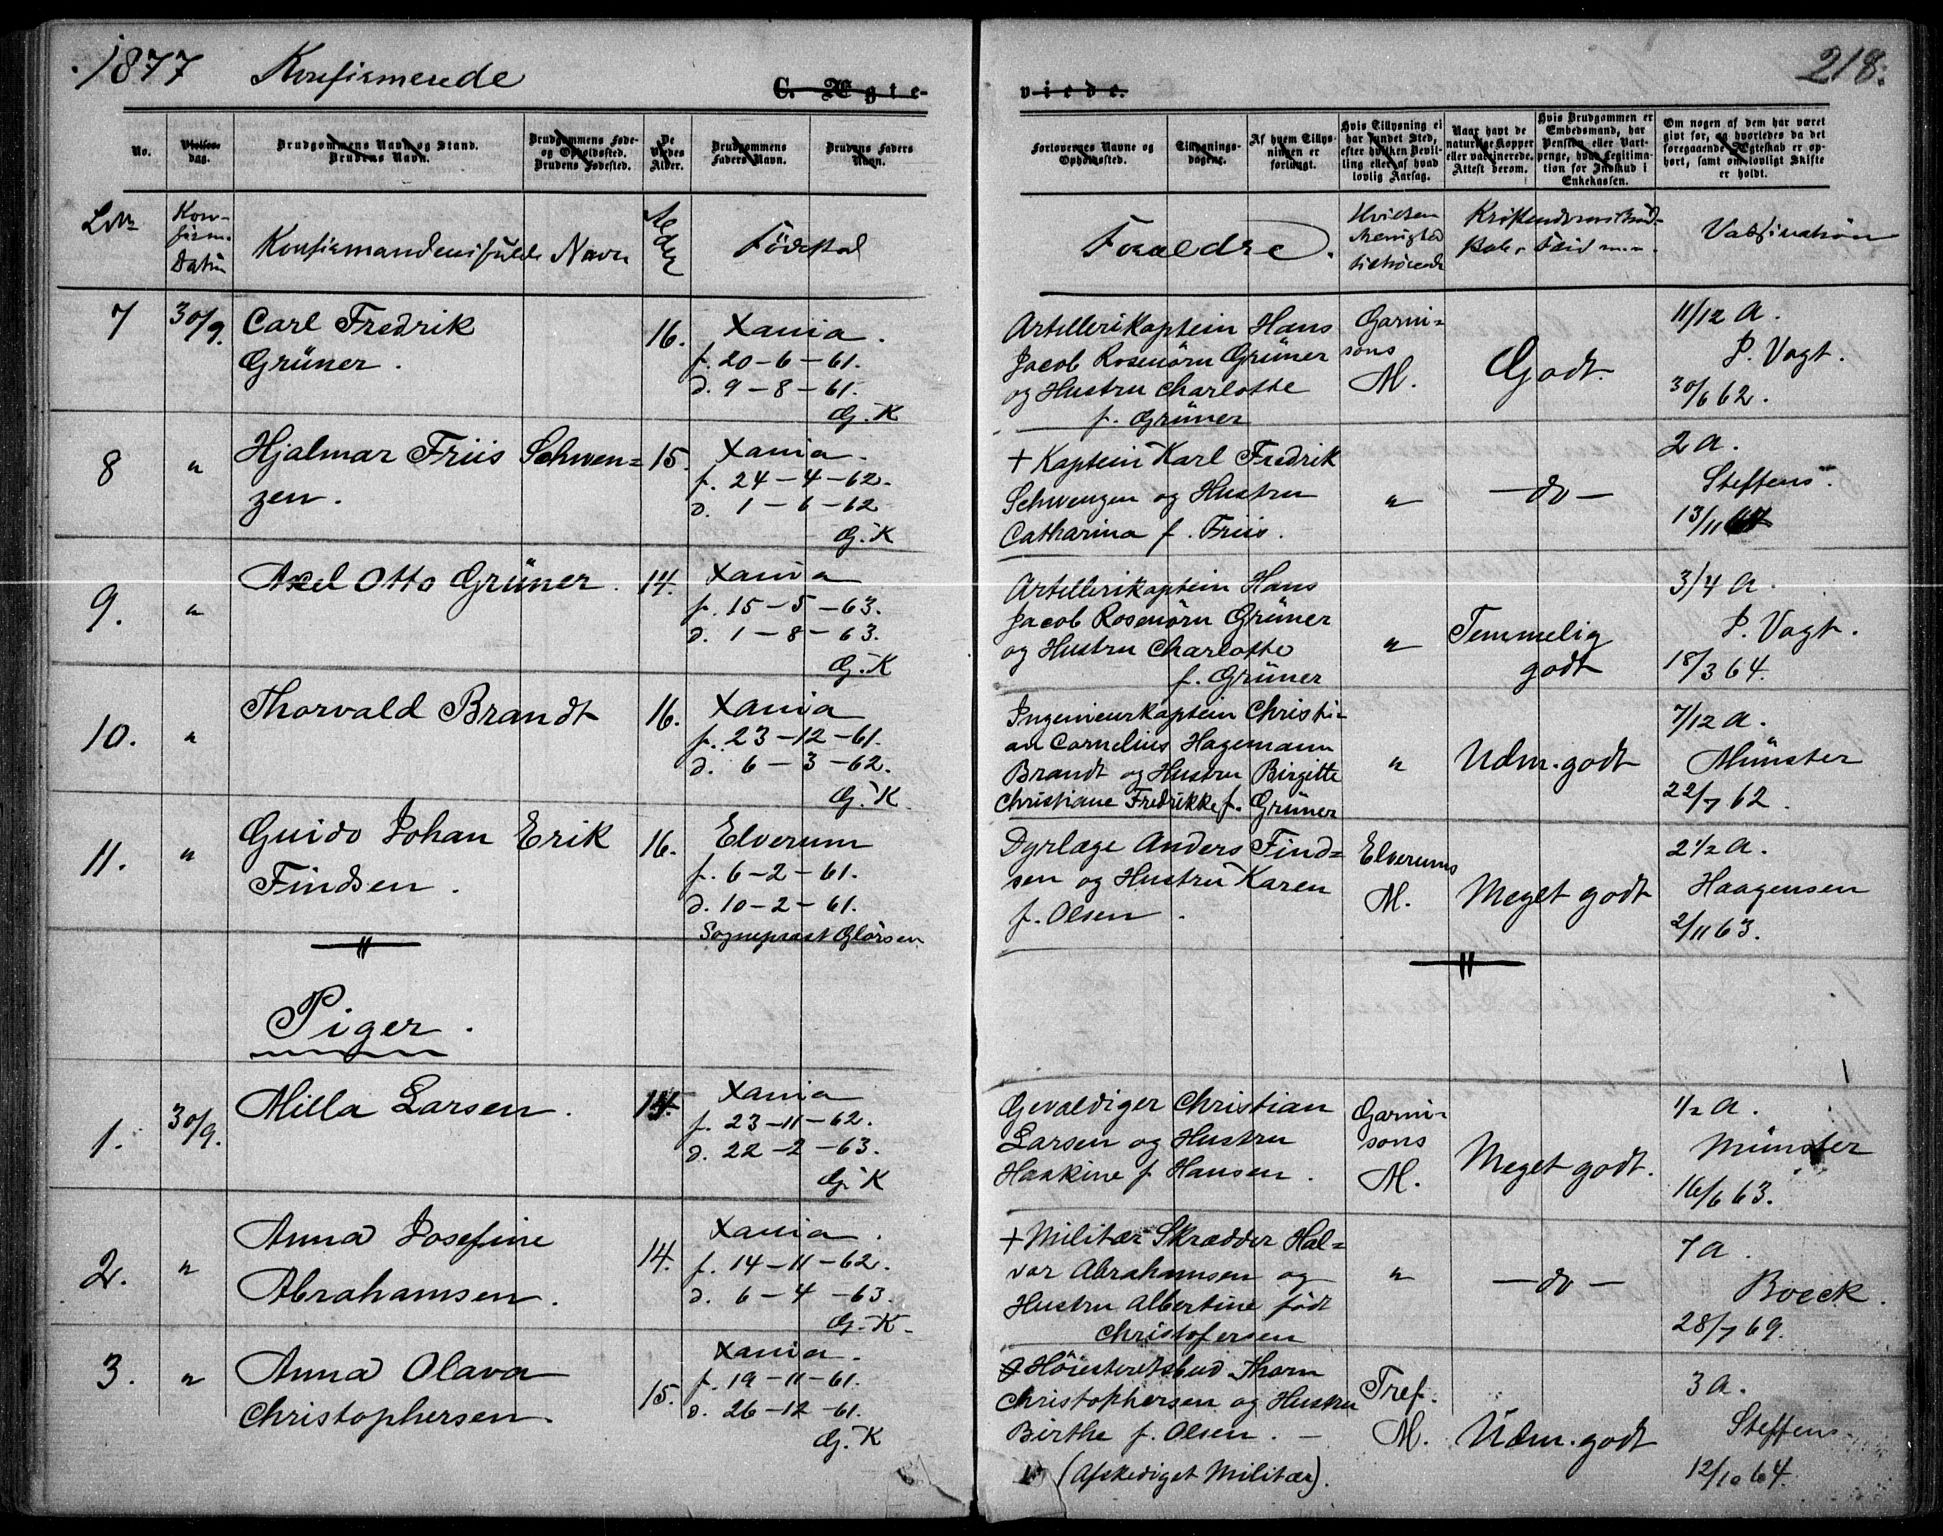 1877 Konfirmerede
C. Ægte-
viede.
218.
No.
Vielses-
dag.
Brudgommens Navn og Stand.
Brudens Navn.
Brudgommens Føde-
og Opholdssted.
Brudens Fødested.
De
Viedes
Alder.
Brudgommens
Faders Navn.
Brudens Faders
Navn.
Forlovernes Navne og
Opholdssted.
Tillysnings-
dagene.
Af hvem Tillys-
ningen er
forlangt.
Hvis Tillysning ei
har fundet Sted,
efter hvilken Bevil-
ling eller af hvad
lovlig Aarsag.
Naar havt de
naturlige Kopper
eller vaccinerede.
Attest derom.
Hvis Brudgommen er
Embedsmand, har
Pension eller Vart-
penge, hvad Legitima-
tion for Indskud i
Enkekassen.
Om nogen af dem har været
givt før, og hvorledes da det
foregaaende Ægteskab er op-
hørt, samt om lovligt Skifte
er holdt.
Kon-
firm.
Datum
Konfirmandens fulde Navn
Alder
Födested
Forældre.
Hvilken
Menighed
tilhörende
Kristendomskund-
skab, Flid m.m.
Vaksination
7
30/9.
Carl Fredrik
Grüner.
16.
Xania.
f. 20-6-61.
d. 9-8-61.
G.K
Artillerikaptein Hans
Jacob Rosenörn Grüner
og Hustru Charlotte
f. Grüner
Garni=
sons
M.
Godt.
11/12 A.
P. Vogt.
30/6 62.
8
"
Hjalmar Friis Schwen=
zen.
15.
Xania.
f. 24-4-62.
d. 1-6-62
G.K
+ Kaptein Karl Fredrik
Schwenzen og Hustru
Catharina f. Friis.
"
-do-
2 a.
Steffens
13/11
9.
"
Axel Otto Grüner.
14.
Xania
f. 15-5-63.
d. 1-8-63.
G.K
Artillerikaptein Hans
Jacob Rosenörn Grüner
og Hustru Charlotte
f. Grüner
"
Temmelig
godt
3/4 a.
P. Vogt.
18/3 64.
10.
"
Thorvald Brandt
16.
Xania
f. 23-12-61.
d. 6-3-62.
G.K.
Ingenieurkaptein Christi-
an Cornelius Hagemann
Brandt og Hustru Birgitte
Christiane Fredrikke f. Grüner
"
Udm. godt
7/12 a.
Münster
22/7 62.
11.
"
Guido Johan Erik
Findsen.
16.
Elverum
f. 6-2-61.
d. 10-2-61.
Sognepræst Glörsen
Dyrlæge Anders Find=
sen og Hustru Karen
f. Olsen.
Elverums
M.
Meget godt
2 1/2 a.
Haagensen
2/11 63.
Piger.
1.
30/9.
Milla Larsen.
14.
Xania
f. 23-11-62.
d. 22-2-63.
G.K
Gevaldiger Christian
Larsen og Hustru
Haakine f Hansen.
Garni=
sons
M.
Meget godt.
1/2 a.
Münster
16/6 63.
2.
"
Anna Josefine
Abrahamsen.
14.
Xania.
f. 14-11-62.
d. 6-4-63.
G.K.
+ Militær Skrædder Hal=
vor Abrahamsen og
Hustru Albertine födt
Christofersen
"
-do-
7 a.
Boeck.
28/7 69.
3.
"
Anna Olava
Christophersen.
15.
Xania.
f. 19-11-61.
d. 26-12-61.
G.K
Höiesteretsbud Thorn
Christophersen og Hustru
Birthe f. Olsen. -
(Afskediget Militær).
Tref.
M.
Udm. godt
3 a.
Steffens
12/10 64.